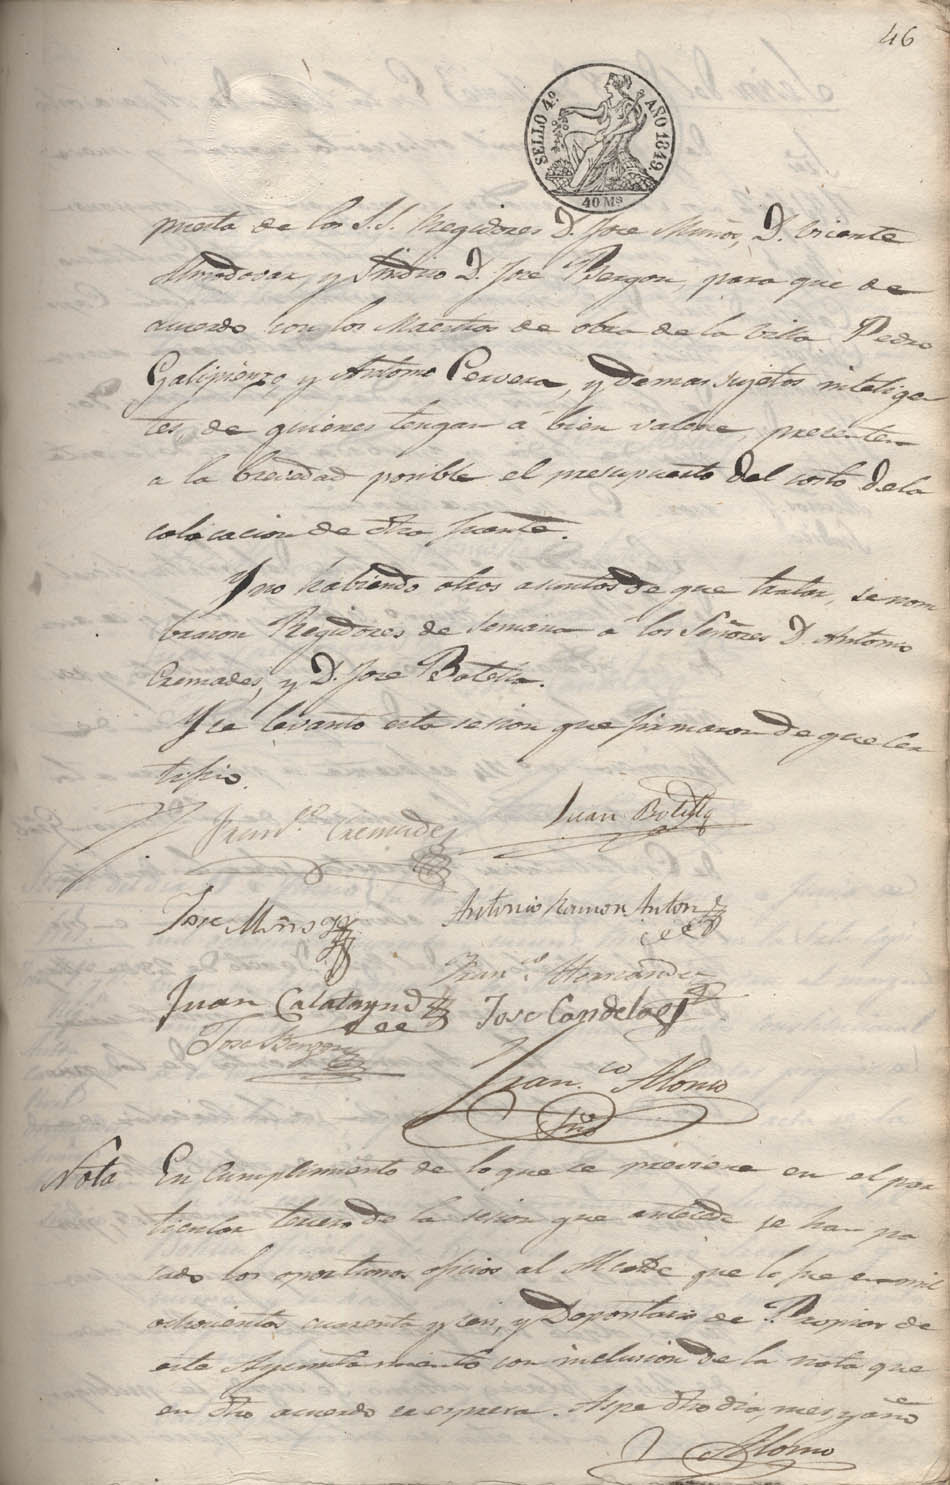 46
SELLO 4.º AÑO 1849.
40 Ms
puesta de los S.S. Regidores D. Jose Muños, D. Vicente
Almodovar, y Sindico D. Jose Berzon, para que de
acuerdo con los Maestros de obra de la Villa Pedro
Galipienzo y Antonio Cervera, y demas sujetos intelige
tes, de quienes tengan á bien valerse, presenten
a la brevedad posible el presupuesto del costo de la
colocacion de dha fuente.
Y no habiendo otros asuntos de que tratar, se nom
braron Regidores de semana a los Señores D. Antonio
Cremades, y D. Jose Botella.
Y se levantó esta sesion que firmaron de que Cer
tifico.
Fran.co Cremades
Juan Botella
Jose Muños
Antonio Ramon Anton
Fran.co Hernandez
Juan Calatayud
Jose Candela
Jose Berzon
Fran.co Alonso
Srio
Nota
En cumplimiento de lo que se previene en el par
ticular tercero de la sesion que antecede se han pa
sado los oportunos oficios al Alcalde que lo fue en mil
ochocientos cuarenta y seis, y Depositario de Propios de
este Ayuntamiento con inclusion de la nota que
en dho acuerdo se espresa. Aspe dho dia, mes, y año
Alonso